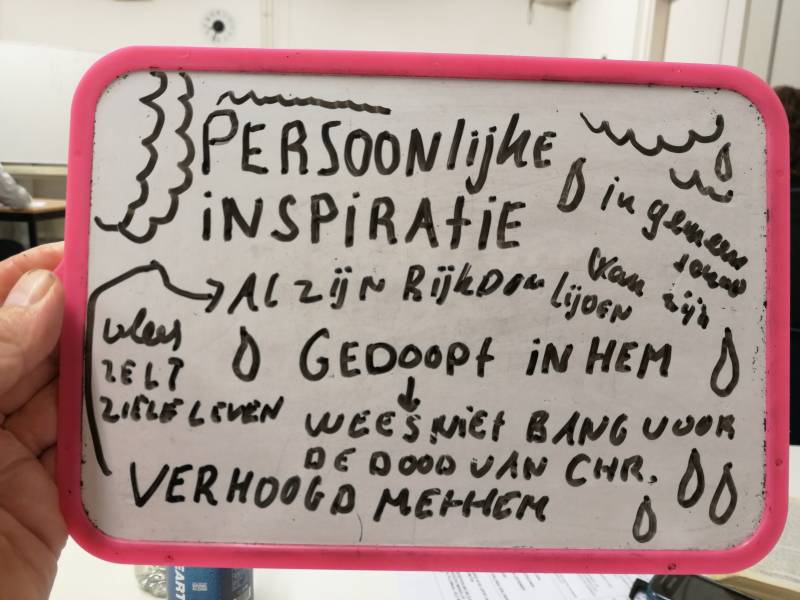 PERSOONlijke
iNSPiRAtiE
in gemeen
schap
van zijn
lijDEN
Al ZijN RijkDom
vlees
ZELF
ZIELELEVEN
GEDOOPt iN HEM
WEES NiEt BANG VOOR
DE DOOD VAN CHR.
VERHOOGD MET HEM
EART